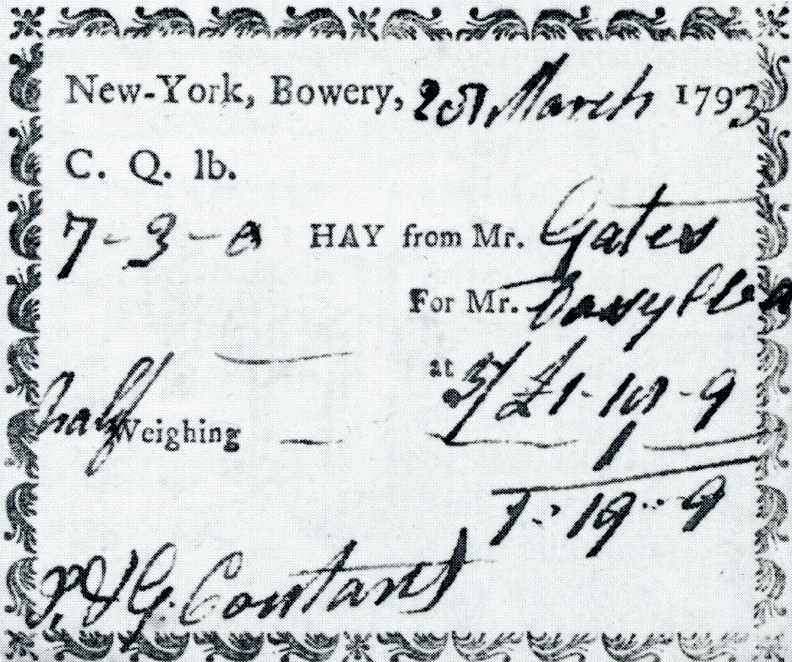 New-York, Bowery, March 1793
C. Q. lb.
7-3-0 HAY from Mr. Gates
For Mr.
at 5/ £1-18-9
half Weighing 1
1-19-9
& G. Contant